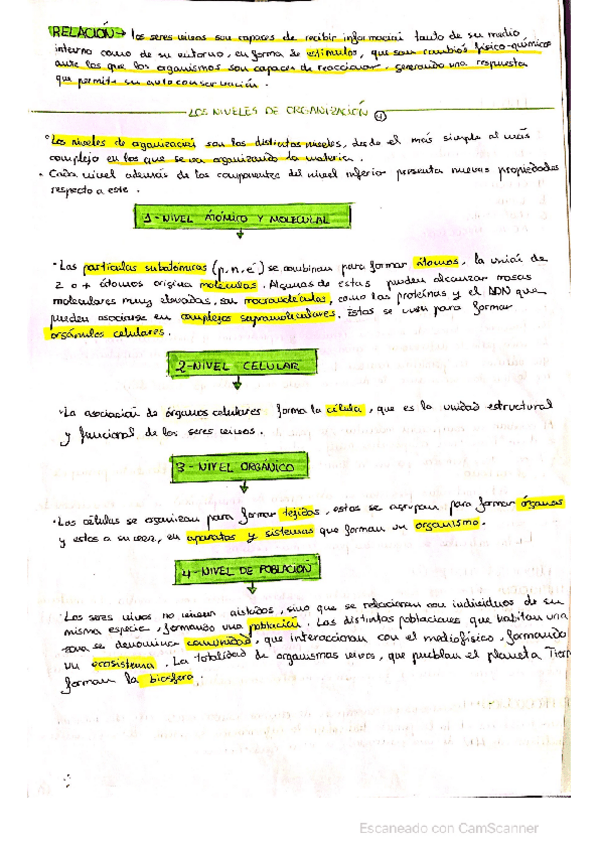 RELACIÓN→ los seres vivos son capaces de recibir información tanto de su medio
interno como de su entorno, en forma de estímulos, que son cambios físico-químicos
ante los que los organismos son capaces de reaccionar, generando una respuesta
que permite su auto conservación.
LOS NIVELES DE ORGANIZACIÓN 4
° Los niveles de organización son los distintos niveles, desde el más simple al más
complejo en los que se va organizando la materia.
• Cada nivel además de los componentes del nivel inferior presenta nuevas propiedades
respecto a este.
1-NIVEL ATÓMICO Y MOLECULAR
• Las partículas subatómicas (p, n, e⁻) se combinan para formar átomos, la unión de
2 o + átomos origina moléculas. Algunas de estas pueden alcanzar masas
moleculares muy elevadas, son macromoléculas, como las proteínas y el ADN que
pueden asociarse en complejos supramoleculares. Estas se unen para formar
orgánulos celulares.
2-NIVEL CELULAR
• La asociación de órganos celulares forma la célula, que es la unidad estructural
y funcional de los seres vivos.
3-NIVEL ORGÁNICO
• Las células se organizan para formar tejidos, estos se agrupan para formar órganos
y estos a su vez, en aparatos y sistemas que forman un organismo.
4-NIVEL DE POBLACIÓN
• Los seres vivos no viven aislados, sino que se relacionan con individuos de su
misma especie, formando una población. Las distintas poblaciones que habitan una
zona se denomina comunidad, que interaccionan con el medio físico, formando
un ecosistema. La totalidad de organismos vivos, que pueblan el planeta Tierr
forman la biosfera.
Escaneado con CamScanner